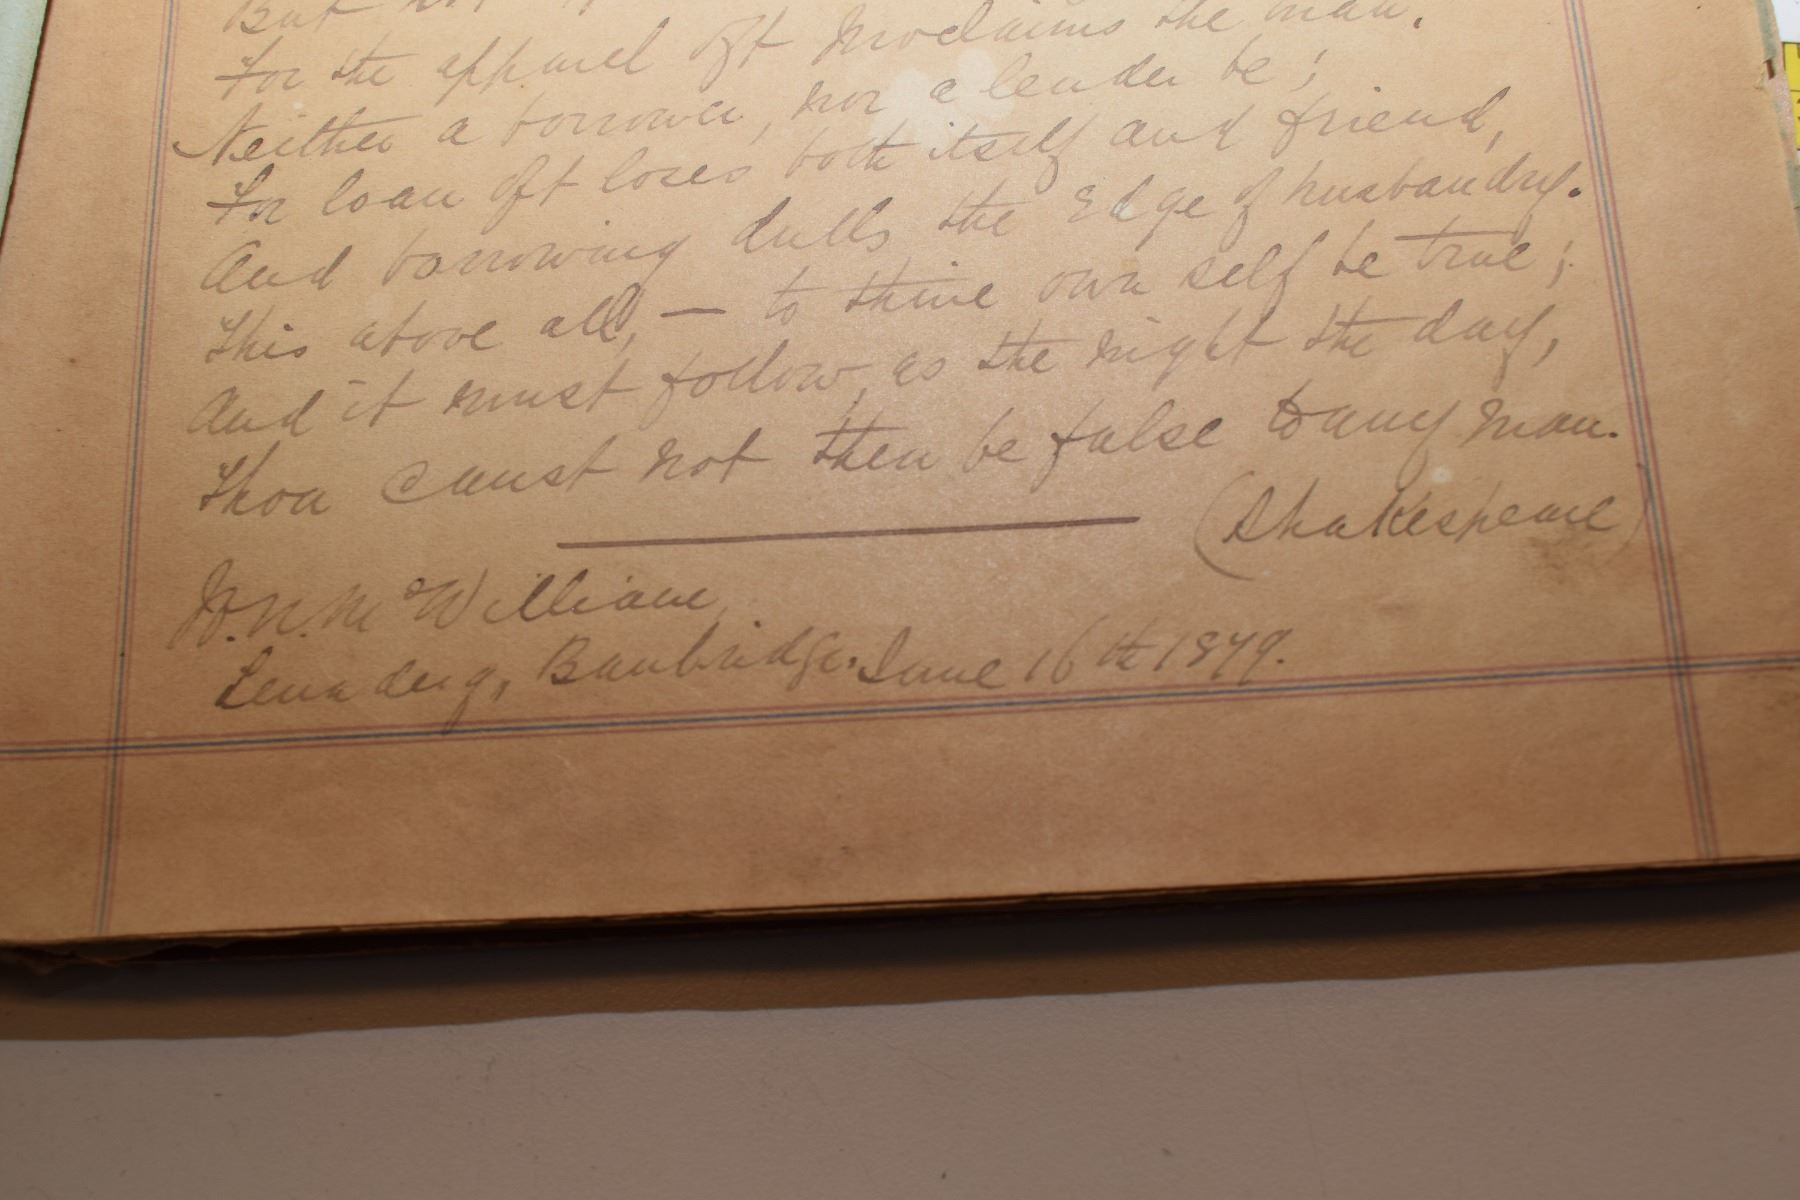 But
For the apparel oft proclaims the man.
Neither a borrower, nor a lender be;
For loan oft loses both itself and friend,
And borrowing dulls the Edge of husbandry.
This above all, — to thine own self be true;
And it must follow, as the night the day,
Thou canst not then be false to any man.
(Shakespeare)
McWilliam,
Lenaderg, Banbridge. June 16th 1879.